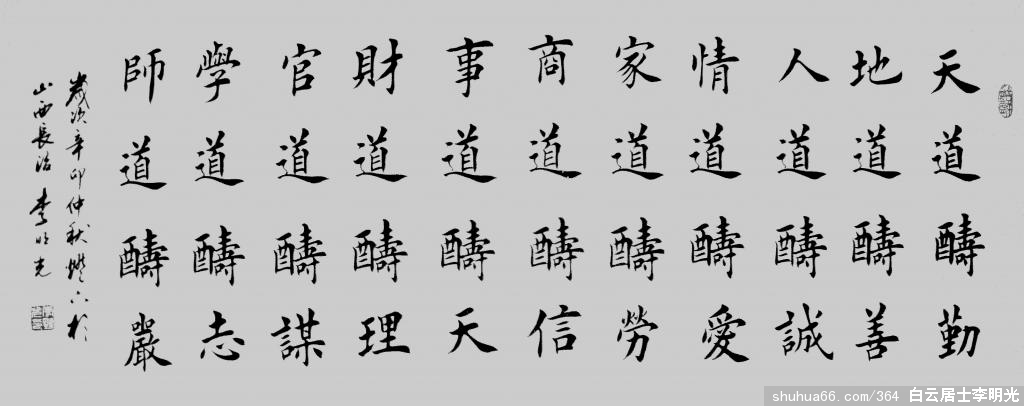 天道醻勤
地道醻善
人道醻誠
情道醻愛
家道醻勞
商道醻信
事道醻天
財道醻理
官道醻謀
學道醻志
師道醻嚴
歲次辛卯仲秋燈下於
山西長治 李明光
shuhua66.com/364 白云居士李明光